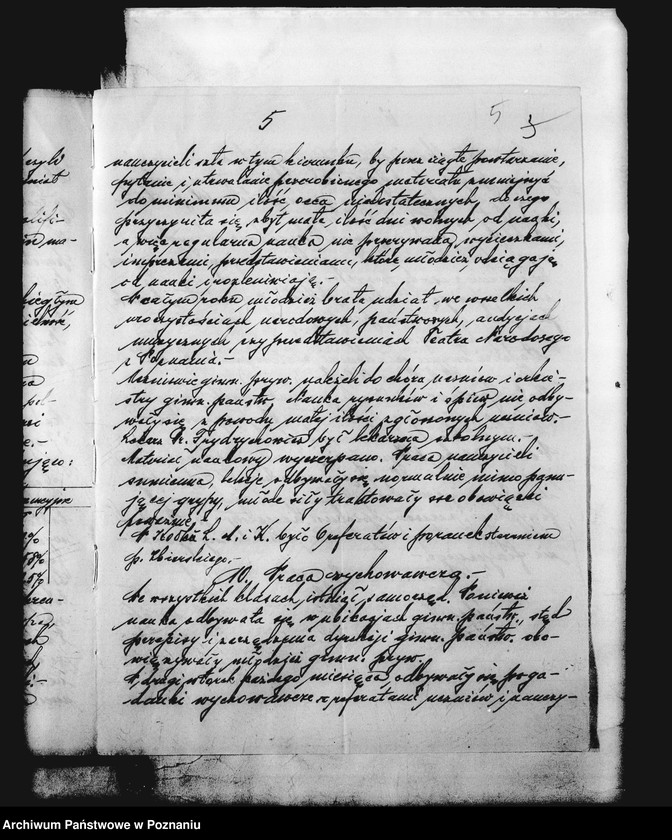 5
5
nauczycieli szła w tym kierunku, by przez ciągłe powtarzanie,
pytanie i utrwalanie przerobionego materiału zmniejszyć
do minimum ilość ocen niedostatecznych, do czego
przyczyniła się zbyt mała ilość dni wolnych od nauki,
a więc regularna nauka nie przerywana wycieczkami,
przedstawieniami, które młodzież odciągają
od nauki i rozleniwiają.-
W całym roku młodzież brała udział we wszelkich
uroczystościach narodowych, państwowych, audycjach
muzycznych przy przedstawieniach Teatru Narodowego
z Poznania.-
Uczniowie gimn. pryw. należeli do chóru uczniów i orkie-
stry gimn. państw. Nauka rysunków i śpiew nie odby-
wały się z powodu małej ilości zgłoszonych uczniów.-
był lekarzem szkolnym.-
Materiał naukowy wyczerpano. Praca nauczycieli
sumienna, lekcje odbywały się normalnie mimo panu-
jącej grypy, młode siły traktowały swe obowiązki
poważnie.-
W i K. było 6 referatów i poranek staraniem
p. Zbierskiego.-
10. Praca wychowawcza.-
We wszystkich klasach istniał samorząd. Ponieważ
nauka odbywała się w ubikacjach gimn. państw., stąd
przepisy i zarządzenia dyrekcji gimn. państw. obo-
wiązywały młodzież gimn. pryw.
W drugi wtorek każdego miesiąca odbywały się poga-
danki wychowawcze z referatami uczniów i nauczy-
Archiwum Państwowe w Poznaniu